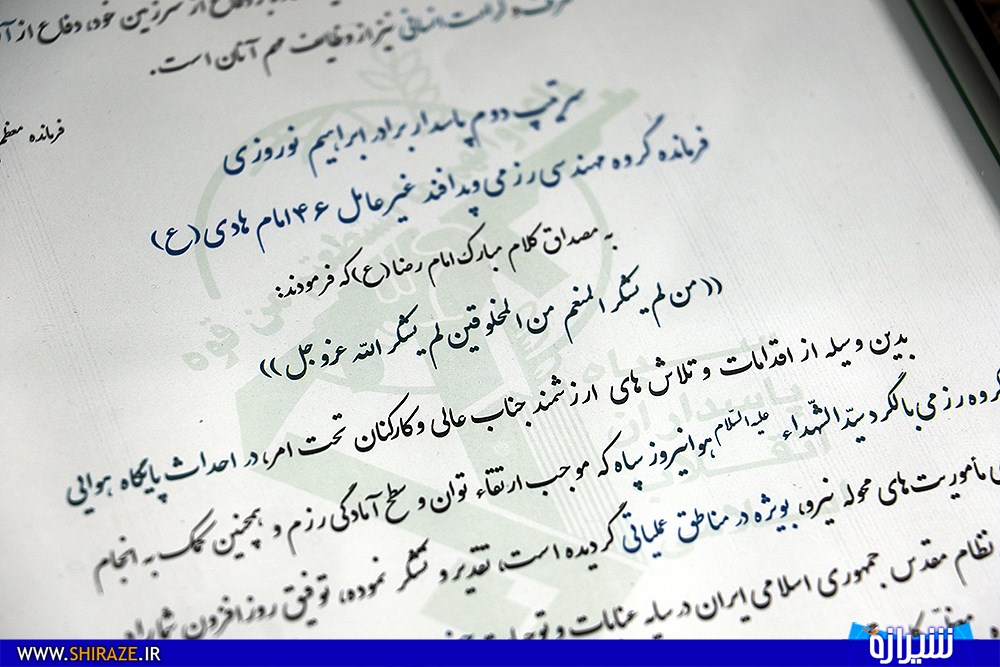 دفاع از سرزمین خود، دفاع از
کرامت انسانی نیز از وظایف مهم آنان است.
فرمانده معظم
سرتیپ دوم پاسدار برادر ابراهیم نوروزی
فرمانده گروه مهندسی رزمی و پدافند غیرعامل ۴۶ امام هادی (ع)
به مصداق کلام مبارک امام رضا (ع) که فرمودند:
((من لم یشکر المنعم من المخلوقین لم یشکر الله عزوجل))
بدین وسیله از اقدامات و تلاش های ارزشمند جناب عالی و کارکنان تحت امر، در احداث پایگاه هوایی
گروه رزمی بالگرد سیّد الشّهداء علیه السّلام هوانیروز سپاه که موجب ارتقاء توان و سطح آمادگی رزم و همچنین کمک به انجام
مأموریت‌های محوله نیرو، بویژه در مناطق عملیاتی گردیده است، تقدیر و تشکر نموده، توفیق روزافزون شما را در
نظام مقدس جمهوری اسلامی ایران در سایه عنایات و
WWW.SHIRAZE.IR
شیرازه